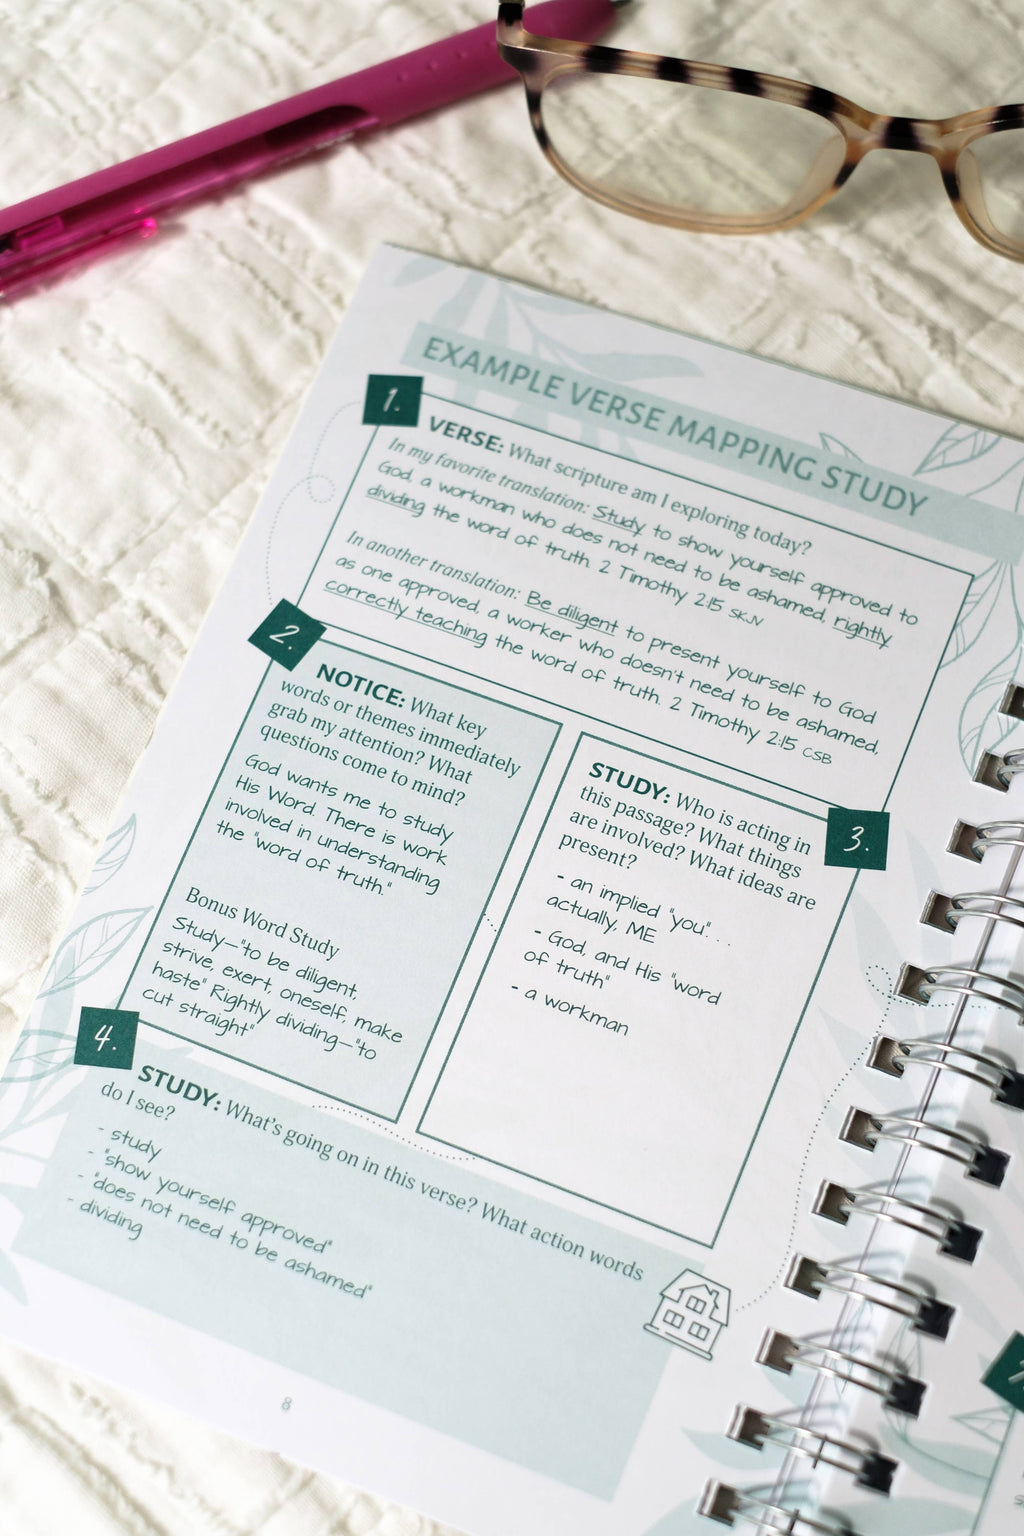 EXAMPLE VERSE MAPPING STUDY
1.
VERSE: What scripture am I exploring today?
In my favorite translation: Study to show yourself approved to
God, a workman who does not need to be ashamed, rightly
dividing the word of truth. 2 Timothy 2:15 SKJV
In another translation: Be diligent to present yourself to God
as one approved, a worker who doesn't need to be ashamed,
correctly teaching the word of truth. 2 Timothy 2:15 CSB
2.
NOTICE: What key
words or themes immediately
grab my attention? What
questions come to mind?
God wants me to study
His Word. There is work
involved in understanding
the "word of truth."
Bonus Word Study
Study—"to be diligent,
strive, exert, oneself, make
haste" Rightly dividing—"to
cut straight"
3.
STUDY: Who is acting in
this passage? What things
are involved? What ideas are
present?
- an implied "you". . .
actually, ME
- God, and His "word
of truth"
- a workman
4.
STUDY: What's going on in this verse? What action words
do I see?
- study
- "show yourself approved"
- "does not need to be ashamed"
- dividing
8